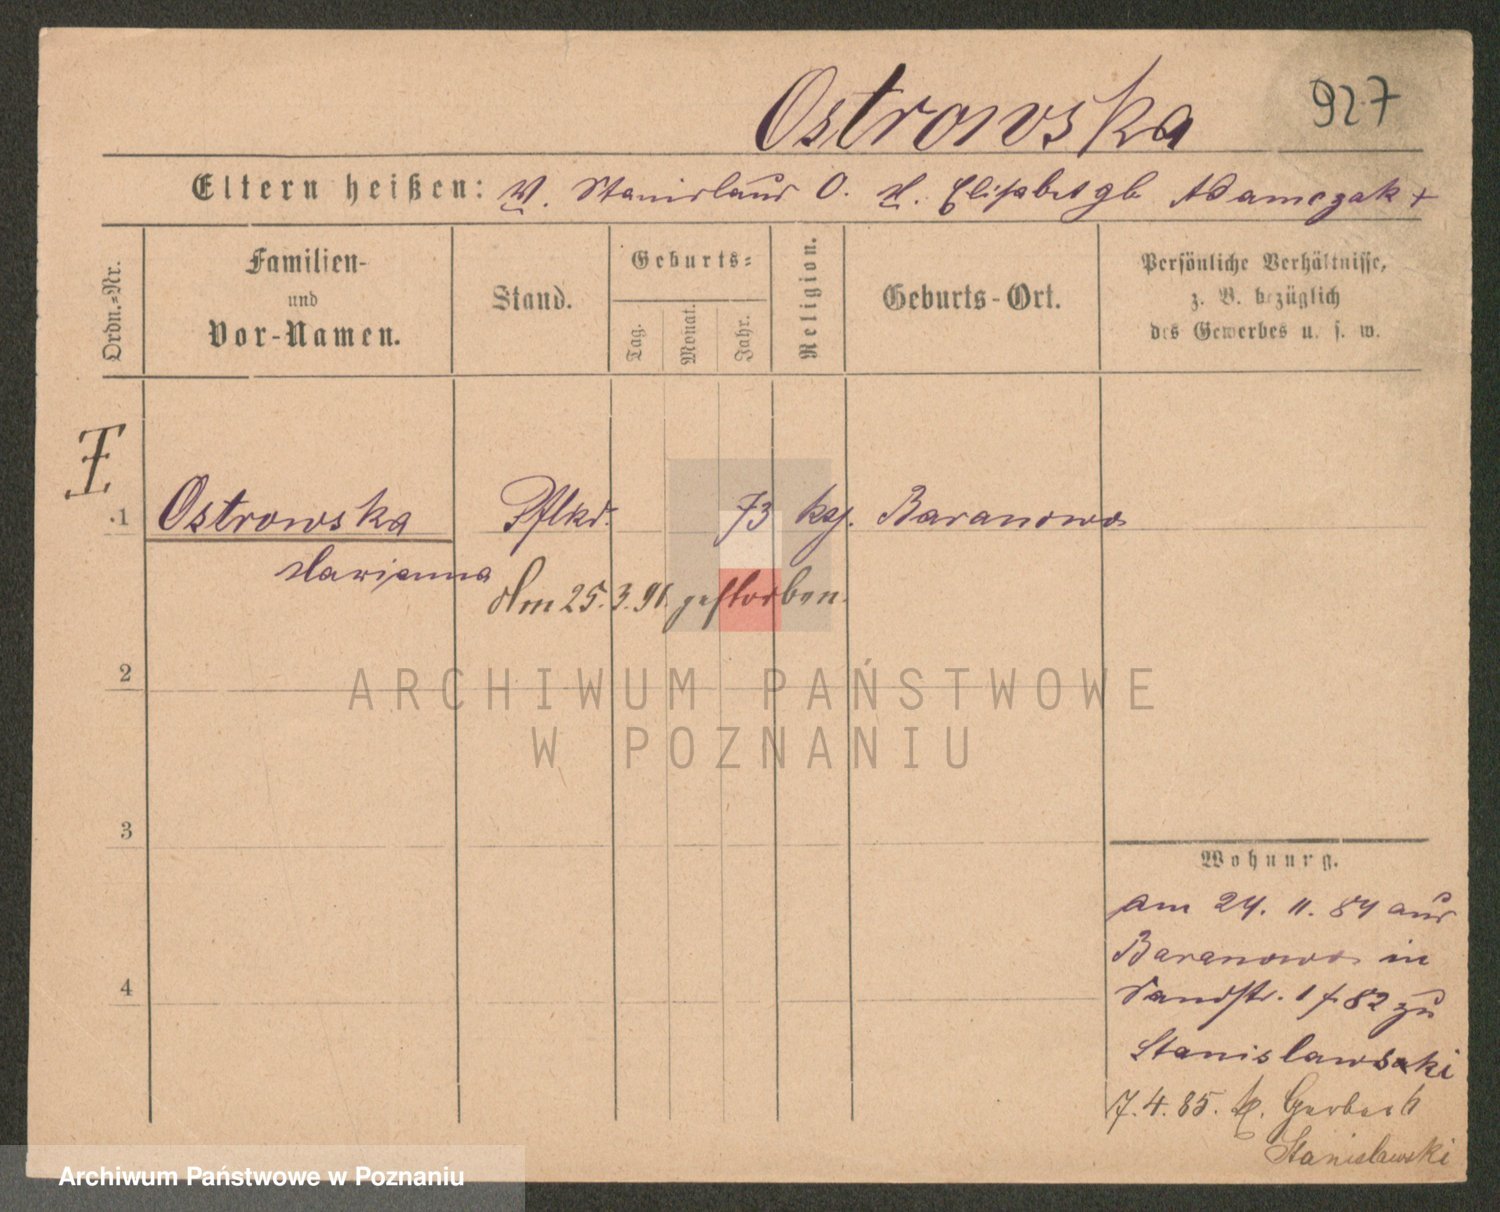 Ostrowska 927
Eltern heißen: V. Stanislaus O. M. Elisabet gb Adamczak +
Ordn.-Nr.
Familien-
und
Vor-Namen.
Stand.
Geburts-
Tag.
Monat.
Jahr.
Religion.
Geburts-Ort.
Persönliche Verhältnisse,
z. B. bezüglich
des Gewerbes u. s. w.
1 Ostrowska Pflkd. 73 kg. Baranowo
Marianna
Am 25.3.91. gestorben.
2
ARCHIWUM PAŃSTWOWE
W POZNANIU
3
Wohnung.
am 24. 11. 84 aus
Baranowo in
Sandstr. 1 f 82 zu
Stanislawski
4
7.4.85.
Stanislawski
Archiwum Państwowe w Poznaniu